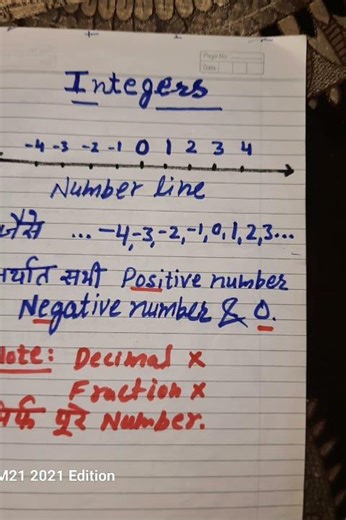 Page No.
Date
Integers
-4 -3 -2 -1 0 1 2 3 4
Number line
जैसे ... -4,-3,-2,-1,0,1,2,3...
अर्थात सभी Positive number
Negative number & 0.
Note: Decimal x
Fraction x
सिर्फ पूरे Number.
M21 2021 Edition